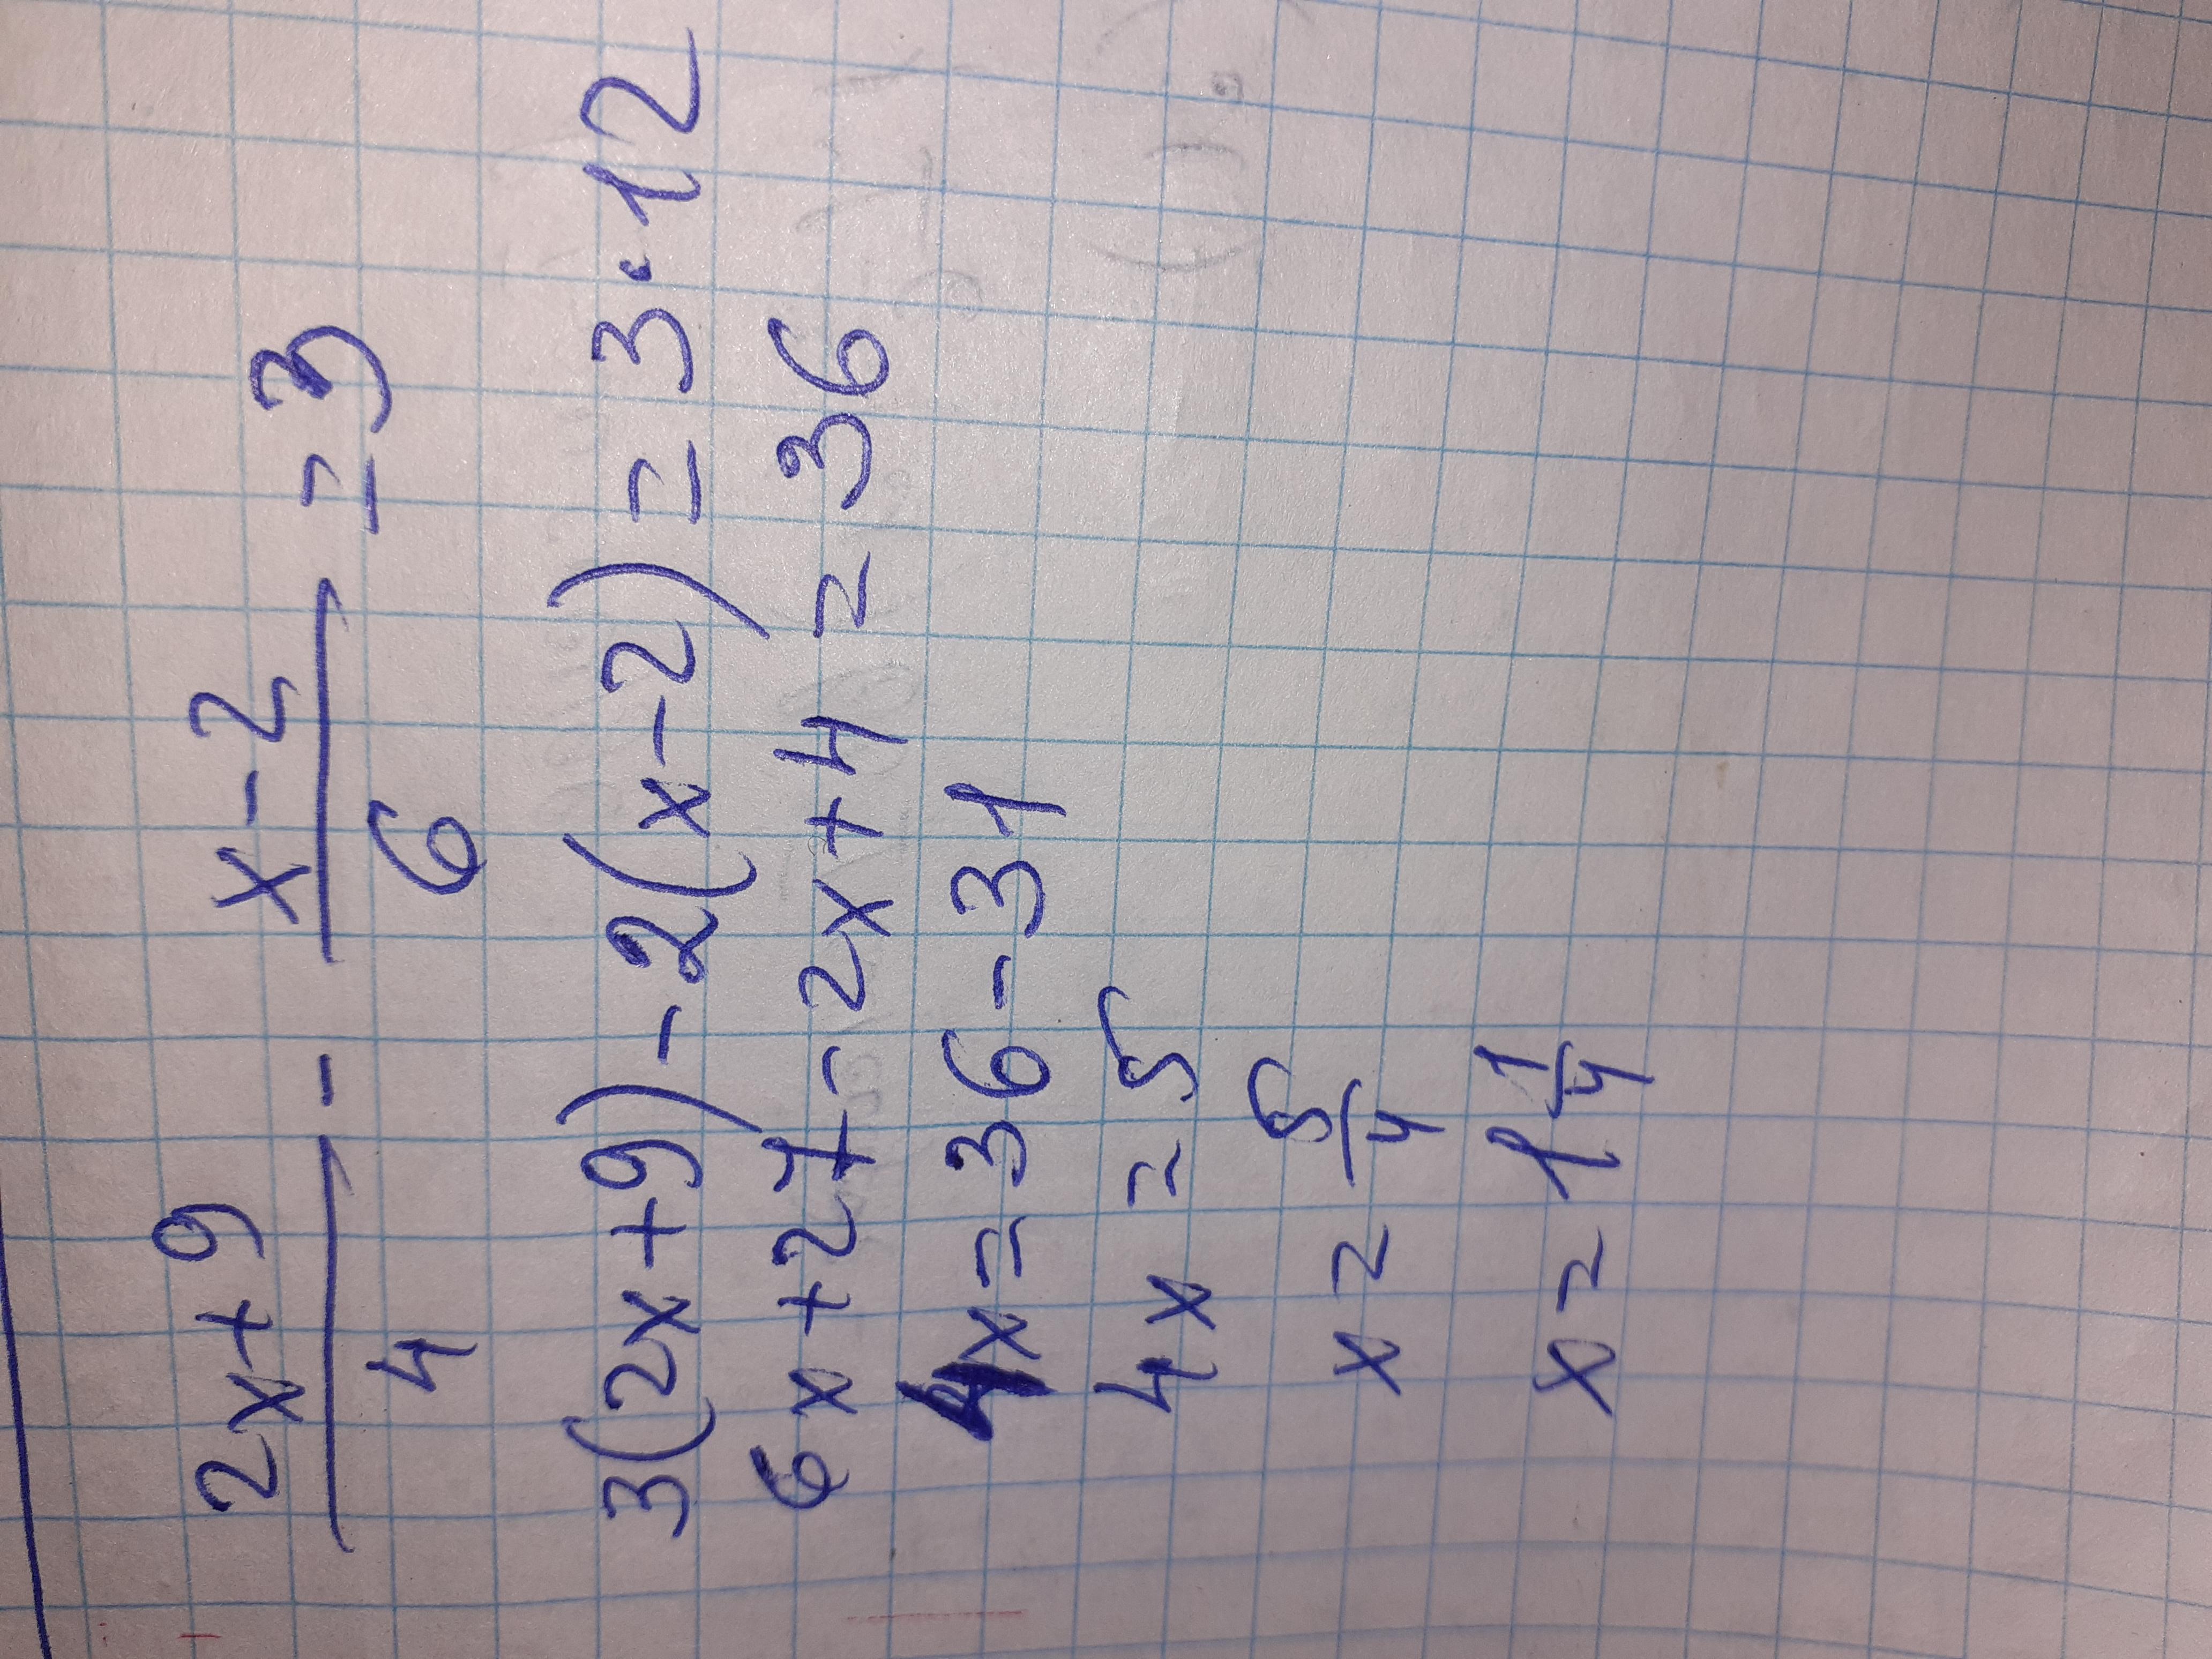 (2x+9)/4 - (x-2)/6 = 3
3(2x+9)-2(x-2)=3·12
6x+27-2x+4=36
4x=36-31
4x=5
x=5/4
x=1 1/4